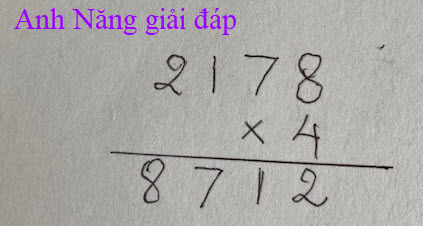 Anh Năng giải đáp
2178
× 4
8712